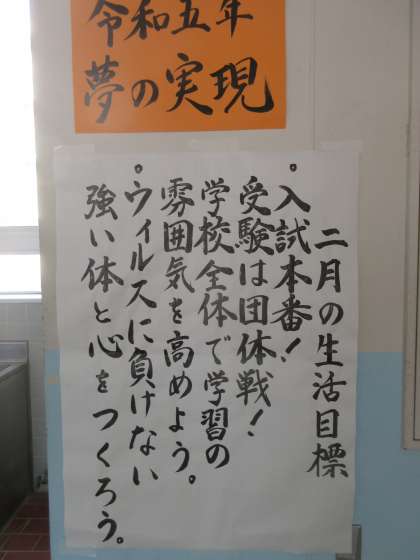 令和五年
夢の実現
二月の生活目標
。入試本番!
受験は団体戦!
学校全体で学習の
雰囲気を高めよう。
。ウィルスに負けない
強い体と心をつくろう。